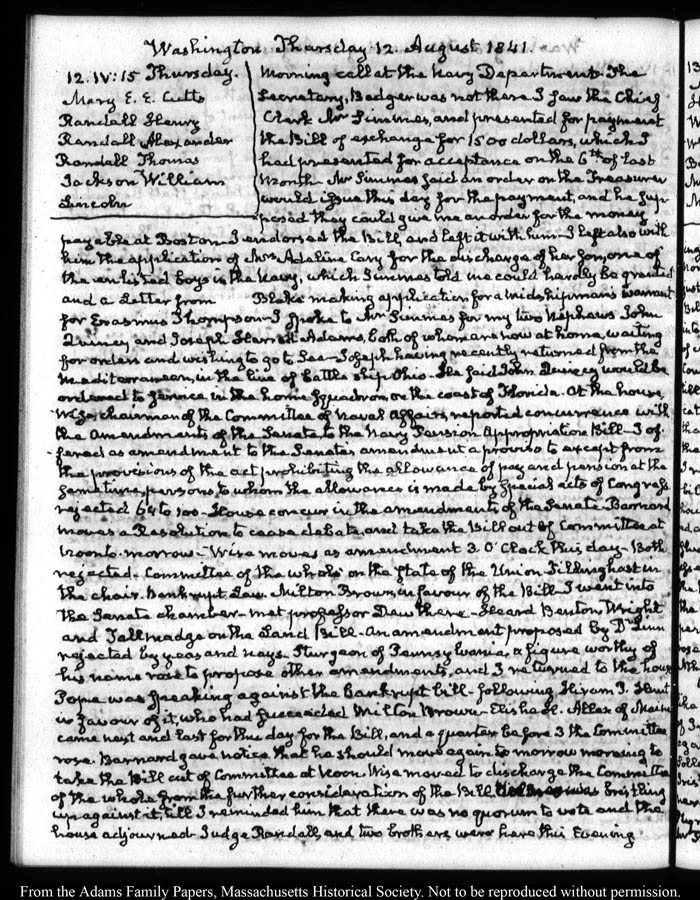 Washington Thursday 12. August 1841.
12. IV:15 Thursday.
Mary E. E. Cutts
Randall Henry
Randall Alexander
Randall Thomas
Jackson William
Lincoln
Morning call at the Navy Department. The
Secretary, Badger was not there I saw the Chief
Clerk Mr Simmes, and presented for payment
the Bill of exchange for 1500 dollars, which I
had presented for acceptance on the 6th of last
month. Mr Simmes said an order on the Treasurer
would issue this day for the payment, and he sup-
posed they could give me an order for the money
payable at Boston. I endorsed the Bill, and left it with him. I left also with
him the application of Mrs Adeline Cary for the discharge of her son, one of
the enlisted boys in the Navy, which Simmes told me could hardly be granted
and a Letter from Blake making application for a midshipman's warrant
for Erasmus Thompson. I spoke to Mr Simmes for my two Nephews John
Quincy and Joseph Harrod Adams, both of whom are now at home, waiting
for orders and wishing to go to Sea - Joseph having recently returned from the
Mediterranean, in the line of battle ship Ohio - He said John Quincy would be
ordered to service in the home Squadron, on the coast of Florida. At the house,
Wise, chairman of the Committee of Naval Affairs, reported concurrence with
the amendments of the Senate, to the Navy Pension Appropriation Bill - I of-
fered as amendment to the Senate's amendment a proviso to except from
the provisions of the act prohibiting the allowance of pay and pension at the
same time, persons to whom the allowance is made by special acts of Congress
rejected 64 to 100 - House concur in the amendments of the Senate. Barnard
moves a Resolution to cease debate, and take the Bill out of Committee at
Noon to-morrow - Wise moves as amendment 3 O'Clock this day - Both
rejected. Committee of the whole on the state of the Union. Tillinghast in
the chair. Bankrupt Law. Milton Brown in favour of the Bill - I went into
the Senate chamber - met professor Dew there - Heard Benton, Wright
and Tallmadge on the Land Bill - An amendment proposed by Dr Linn
rejected by yeas and nays. Sturgeon of Pennsylvania, a figure worthy of
his name rose to propose other amendments, and I returned to the house
Pope was speaking against the Bankrupt bill - following Hiram P. Hunt
in favour of it, who had succeeded Milton Brown - Elisha H. Allen of Maine
came next and last for this day for the Bill, and a quarter before 3 the Committee
rose. Barnard gave notice that he should move again to morrow morning to
take the Bill out of Committee at Noon. Wise moved to discharge the Committee
of the whole from the further consideration of the Bill. was bristling
up against it, till I reminded him that there was no quorum to vote and the
house adjourned. Judge Randall, and two brothers were here this Evening
From the Adams Family Papers, Massachusetts Historical Society. Not to be reproduced without permission.